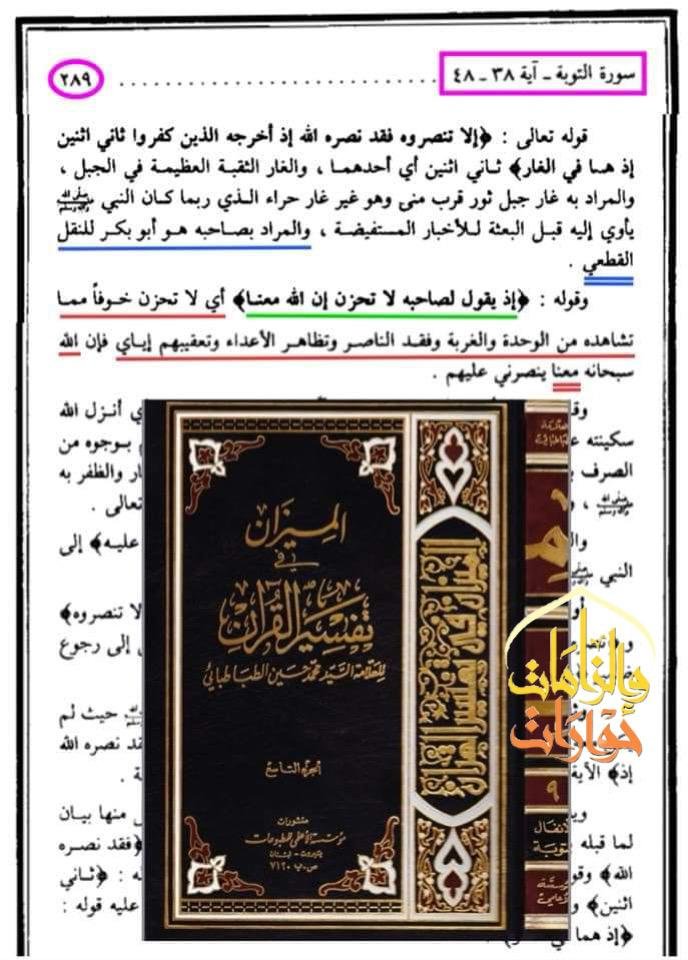 سورة التوبة ـ آية ٣٨ ـ ٤٨
٢٨٩
قوله تعالى : ﴿إلا تنصروه فقد نصره الله إذ أخرجه الذين كفروا ثاني اثنين
إذ هما في الغار﴾ ثاني اثنين أي أحدهما ، والغار الثقبة العظيمة في الجبل ،
والمراد به غار جبل ثور قرب منى وهو غير غار حراء الذي ربما كان النبي ﷺ
يأوي إليه قبل البعثة للأخبار المستفيضة ، والمراد بصاحبه هو أبو بكر للنقل
القطعي .
وقوله : ﴿إذ يقول لصاحبه لا تحزن إن الله معنا﴾ أي لا تحزن خوفاً مما
تشاهده من الوحدة والغربة وفقد الناصر وتظاهر الأعداء وتعقيبهم إياي فإن الله
سبحانه معنا ينصرني عليهم .
ي أنزل الله
سكينته
م بوجوه من
الصرف
ار والظفر به
تعالى .
عليه﴾ إلى
النبي
لا تنصروه﴾
إلى رجوع
حيث لم
قد نصره الله
إذ﴾ الآية
منها بيان
لما قبله
﴿فقد نصره
الله﴾ وقو
ه : ﴿ثاني
اثنين﴾ و
عليه قوله :
﴿إذ هما في
الميزان
في
تفسير القرآن
للعلامة السيد محمد حسين الطباطبائي
الجزء التاسع
منشورات
مؤسسة الأعلمي للمطبوعات
بيروت - لبنان
ص.ب ٧١٢٠
الميزان في تفسير القرآن
٩
الأنفال
التوبة
حوارات
والزامات